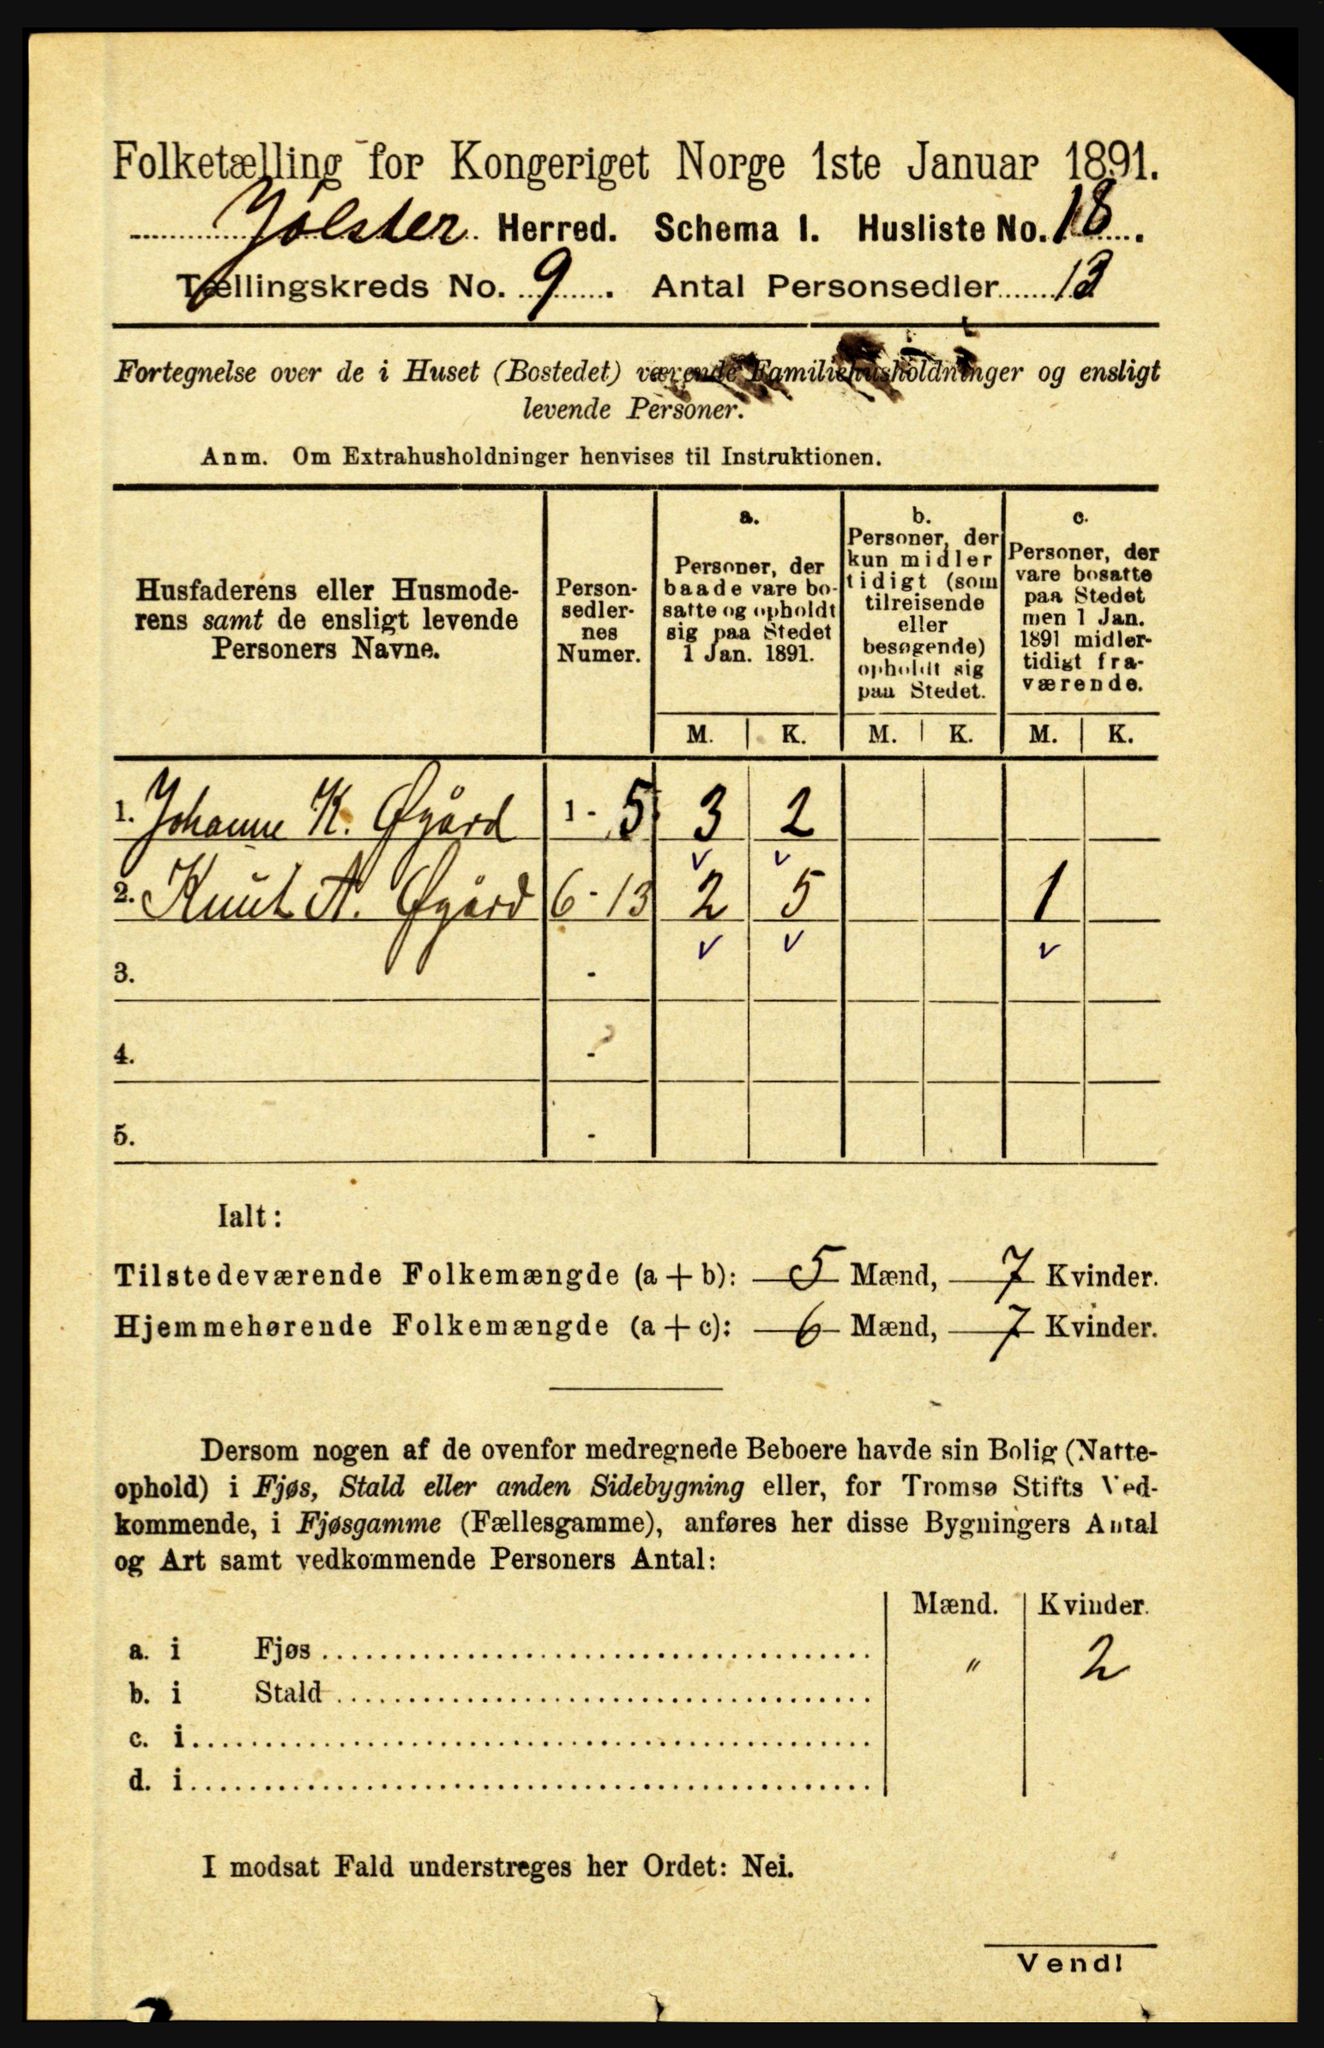 Folketælling for Kongeriget Norge 1ste Januar 1891.
Jølster Herred. Schema I. Husliste No. 18.
Tællingskreds No. 9. Antal Personsedler 13
Fortegnelse over de i Huset (Bostedet) værende Familiehusholdninger og ensligt
levende Personer.
Anm. Om Extrahusholdninger henvises til Instruktionen.
Husfaderens eller Husmoderens samt de ensligt levende Personers Navne.
Person-sedler-nes Numer.
a. Personer, der baade vare bosatte og opholdt sig paa Stedet 1 Jan. 1891.
b. Personer, der kun midlertidigt (som tilreisende eller besøgende) opholdt sig paa Stedet.
c. Personer, der vare bosatte paa Stedet men 1 Jan. 1891 midlertidigt fraværende.
M. K. M. K. M. K.
1. Johanne K. Øgård 1 - 5 3 2
2. Knut A. Øgård 6 - 13 2 5 1
3. -
4. -
5. -
Ialt:
Tilstedeværende Folkemængde (a + b): 5 Mænd, 7 Kvinder.
Hjemmehørende Folkemængde (a + c): 6 Mænd, 7 Kvinder.
Dersom nogen af de ovenfor medregnede Beboere havde sin Bolig (Natte-
ophold) i Fjøs, Stald eller anden Sidebygning eller, for Tromsø Stifts Ved-
kommende, i Fjøsgamme (Fællesgamme), anføres her disse Bygningers Antal
og Art samt vedkommende Personers Antal:
Mænd. Kvinder.
a. i Fjøs " 2
b. i Stald
c. i
d. i
I modsat Fald understreges her Ordet: Nei.
Vend!